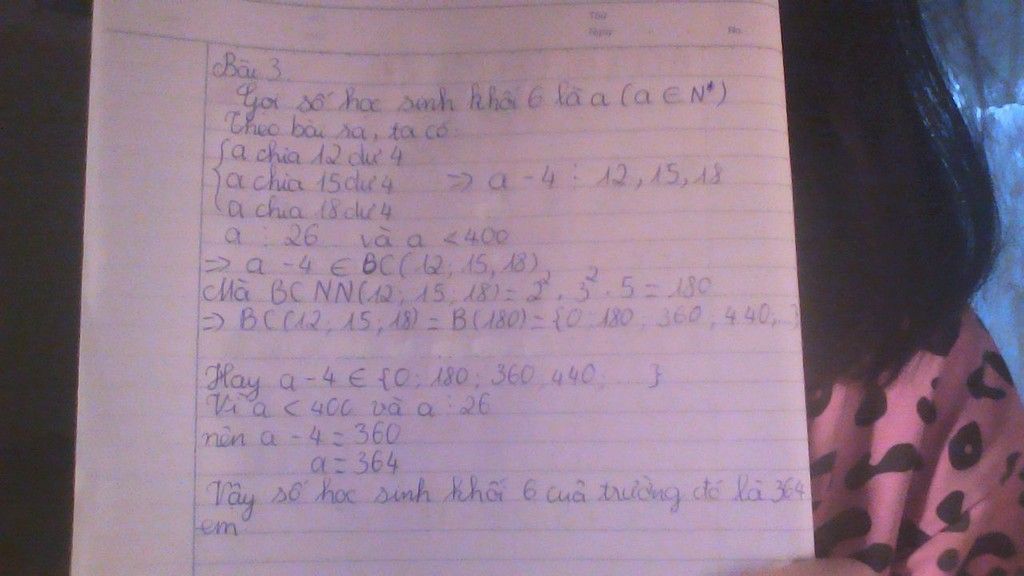 Thứ
Ngày
No.
Bài 3.
Gọi số học sinh khối 6 là a (a ∈ N*)
Theo bài ra, ta có:
a chia 12 dư 4
a chia 15 dư 4 => a - 4 ⋮ 12, 15, 18
a chia 18 dư 4
a ⋮ 26 và a < 400
=> a - 4 ∈ BC(12; 15, 18)
Mà BCNN(12; 15, 18) = 2². 3². 5 = 180
=> BC(12, 15, 18) = B(180) = {0; 180; 360, 440,...}
Hay a - 4 ∈ {0; 180; 360, 440; ... }
Vì a < 400 và a ⋮ 26
nên a - 4 = 360
a = 364
Vậy số học sinh khối 6 của trường đó là 364
em